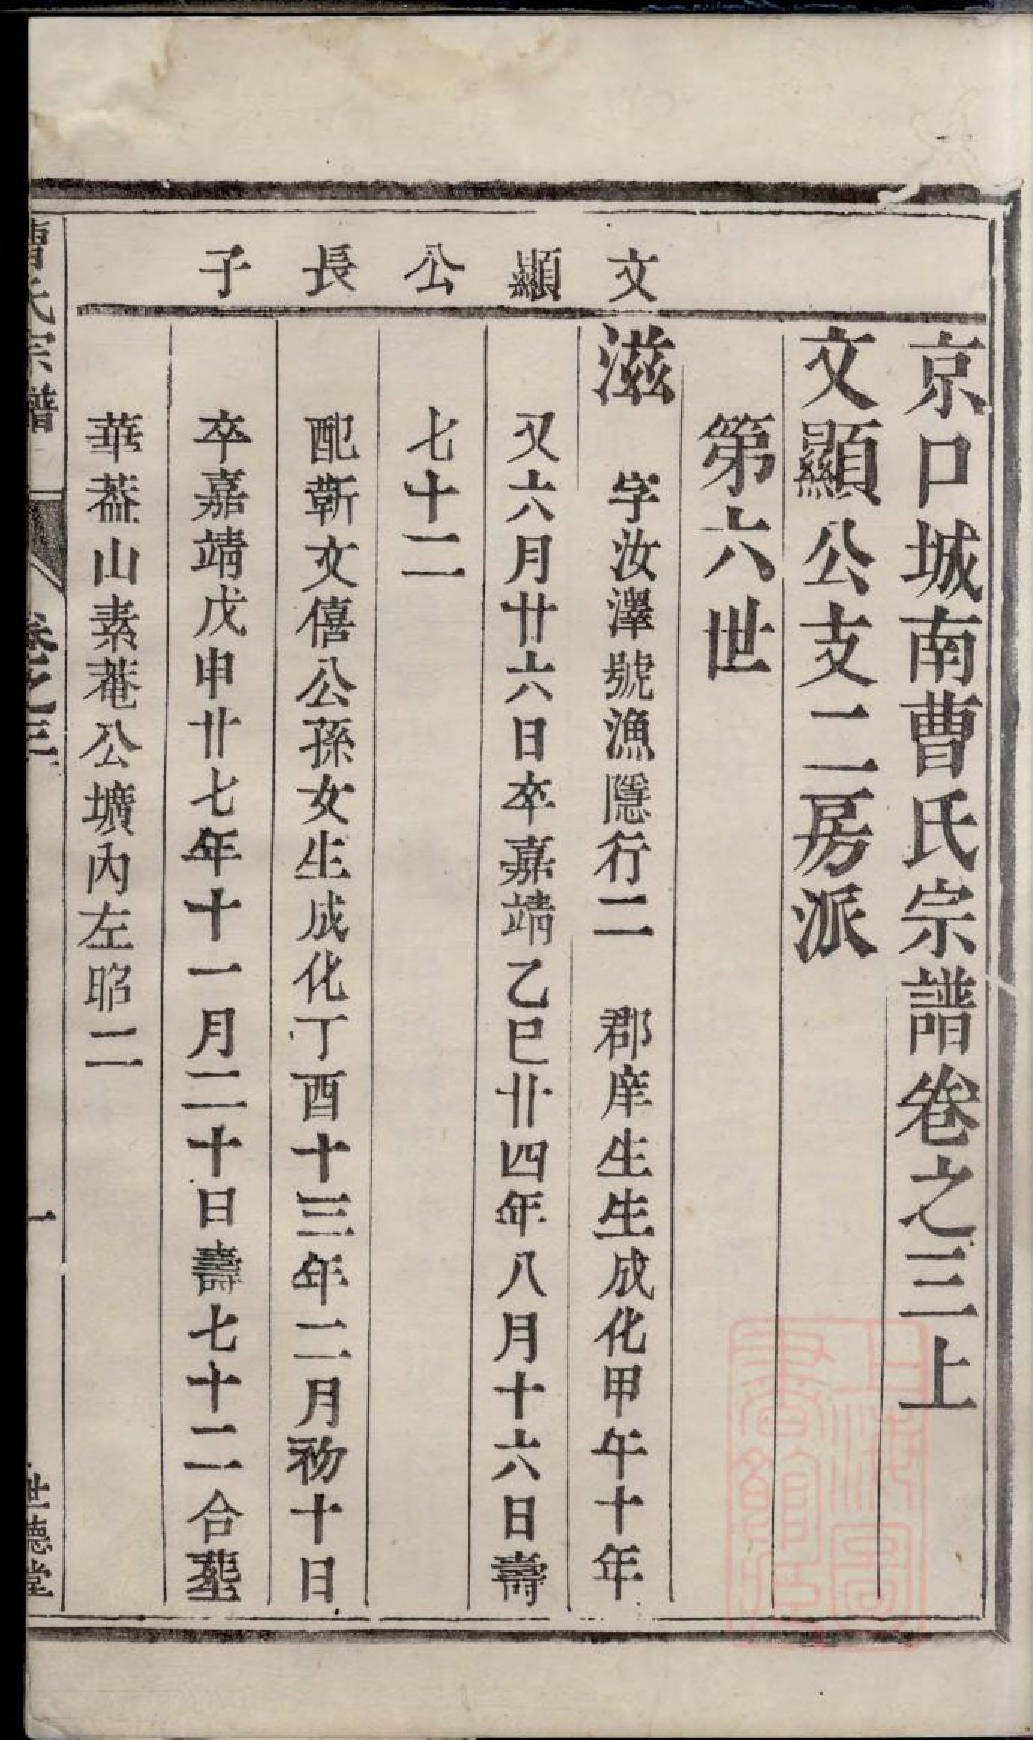 京口城南曹氏宗譜卷之三上
文顯公支二房派
第六世
文顯公長子
滋 字汝澤號漁隱行二 郡庠生生成化甲午十年
又六月廿六日卒嘉靖乙巳廿四年八月十六日壽
七十二
配靳文僖公孫女生成化丁酉十三年二月初十日
卒嘉靖戊申廿七年十一月二十日壽七十二合塟
華葢山素菴公壙內左昭二
曹氏宗譜 卷之三 一 世德堂
上海圖書館藏